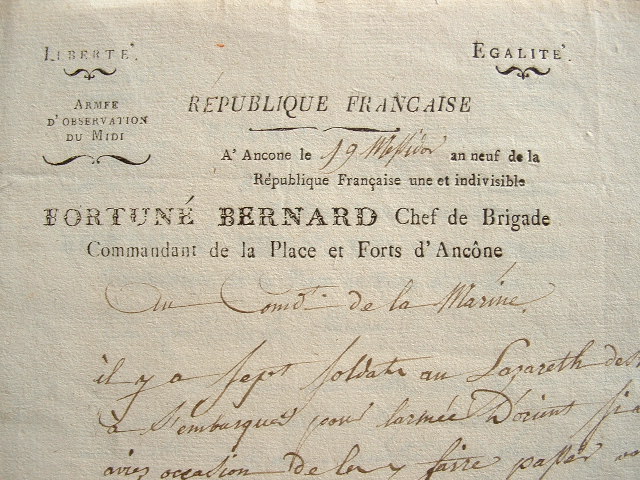 LIBERTÉ.
EGALITÉ.
ARMÉE
D'OBSERVATION
DU MIDI
RÉPUBLIQUE FRANCAISE
A' Ancone le 19 Messidor an neuf de la
République Française une et indivisible
FORTUNÉ BERNARD Chef de Brigade
Commandant de la Place et Forts d'Ancône
Au Comdt. de la Marine.
il y a sept soldats au Lazareth
à s'embarquer pour l'armée D'orient si
aviez occasion de les y faire passer